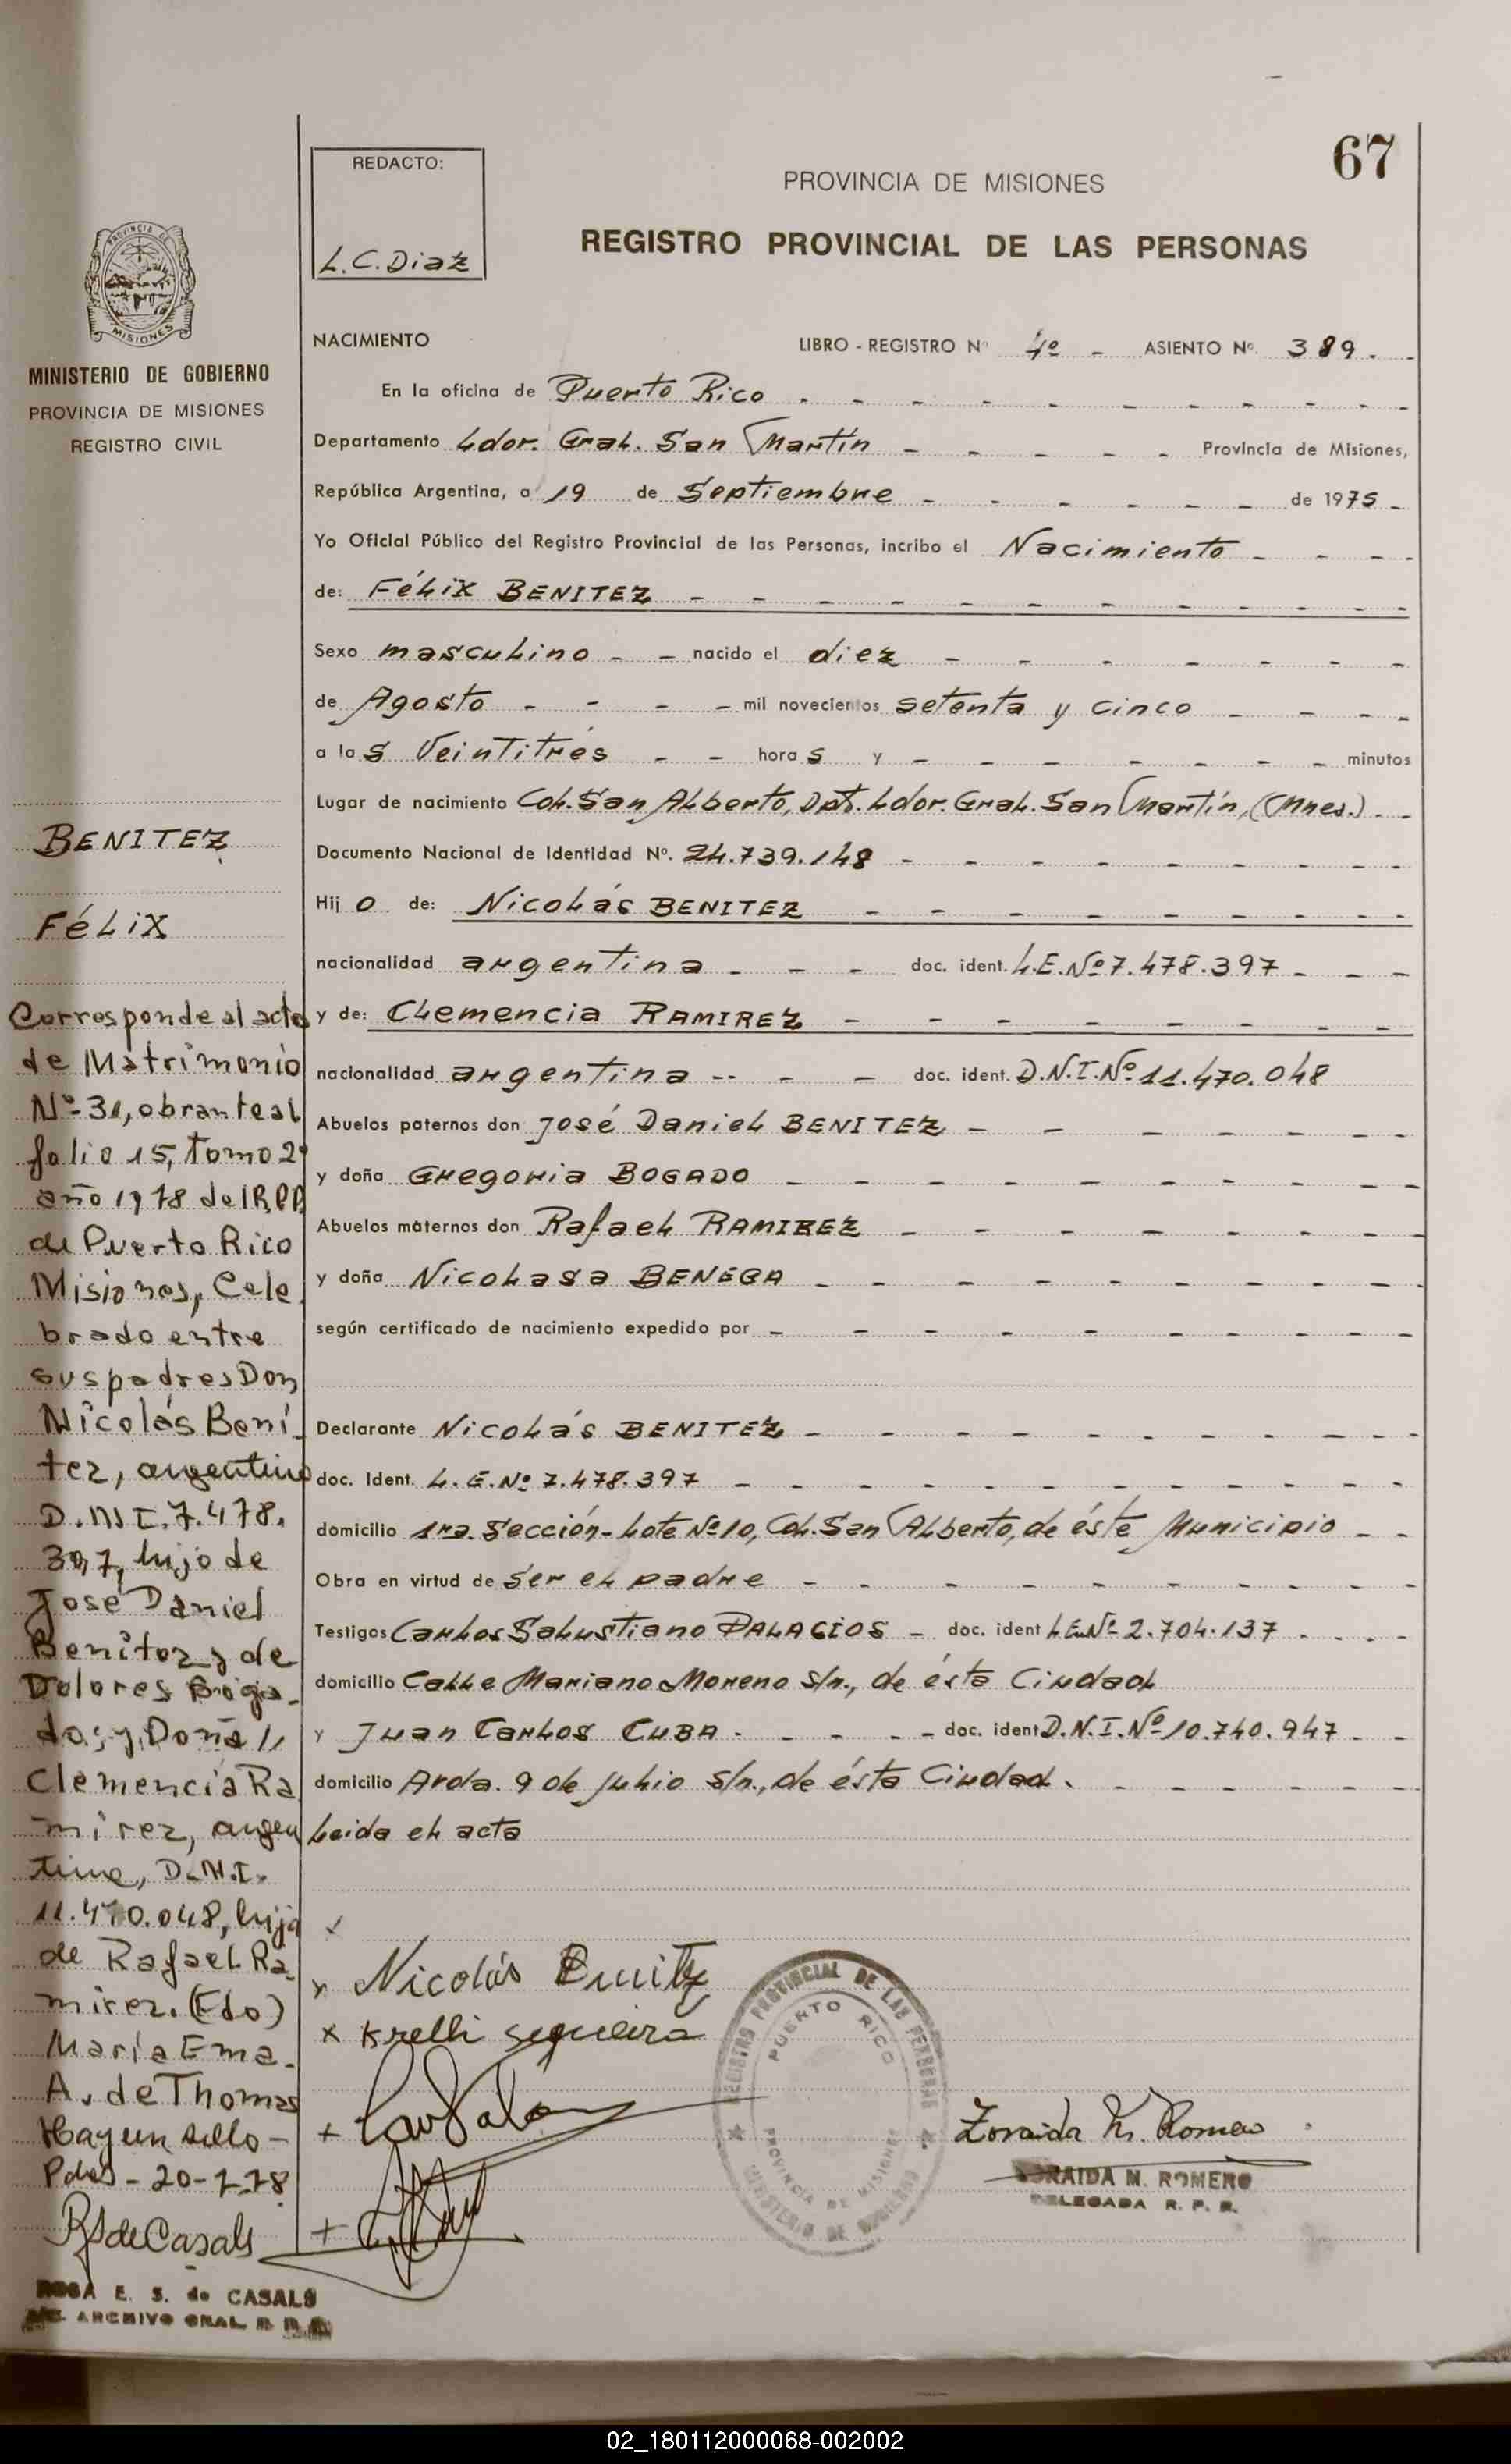 67
REDACTO:
L.C.Diaz
PROVINCIA DE MISIONES
REGISTRO PROVINCIAL DE LAS PERSONAS
PROVINCIA DE
MISIONES
MINISTERIO DE GOBIERNO
PROVINCIA DE MISIONES
REGISTRO CIVIL
NACIMIENTO LIBRO - REGISTRO Nº 4º - ASIENTO Nº 389. -
En la oficina de Puerto Rico - - - - - - - - - -
Departamento Ldor. Gral. San Martín - - - - - Provincia de Misiones,
República Argentina, a 19 de Septiembre - - - - - - de 1975 -
Yo Oficial Público del Registro Provincial de las Personas, incribo el Nacimiento - - - -
de: Félix BENITEZ - - - - - - - - - - -
Sexo masculino - - nacido el diez - - - - - - -
de Agosto - - - - mil novecientos setenta y cinco - - - -
a las Veintitrés - - horas y - - - - - - - minutos
Lugar de nacimiento Col. San Alberto, Dpt. Ldor. Gral. San Martín, (Mnes.) - -
Documento Nacional de Identidad Nº. 24.739.148 - - - - - - - -
Hijo de: Nicolás BENITEZ - - - - - - - - -
nacionalidad argentina - - - doc. ident. L.E.Nº7.478.397 - - -
y de: Clemencia RAMIREZ - - - - - - - - -
nacionalidad argentina -- - - doc. ident. D.N.I.Nº11.470.048
Abuelos paternos don José Daniel BENITEZ - - - - - - -
y doña Gregoria BOGADO - - - - - - - - - -
Abuelos maternos don Rafael RAMIREZ - - - - - - - -
y doña Nicolasa BENEGA - - - - - - - - -
según certificado de nacimiento expedido por - - - - - - - - - -
Declarante Nicolás BENITEZ - - - - - - - - - -
doc. Ident. L.E.Nº 7.478.397 - - - - - - - - - -
domicilio 1ra. Sección-Lote Nº10, Col. San Alberto, de éste Municipio - -
Obra en virtud de ser el padre - - - - - - - - -
Testigos Carlos Salustiano PALACIOS - doc. ident L.E.Nº 2.704.137 - - - -
domicilio Calle Mariano Moreno s/n., de ésta Ciudad
y Juan Carlos CUBA - - - - - doc. ident D.N.I.Nº10.740.947 - -
domicilio Avda. 9 de Julio s/n., de ésta Ciudad. - - - - - -
Leida el acta
BENITEZ
FéLiX
Corresponde al acta
de Matrimonio
Nº 31, obrante al
folio 15, tomo 2º
año 1978 del R.P.P.
de Puerto Rico
Misiones, Cele
brado entre
sus padres Don
Nicolás Beni-
tez, argentino
D.N.I. 7.478.
397, hijo de
José Daniel
Benitez y de
Dolores Boga-
do; y Doña //
Clemencia Ra
mirez, argen
tina, D.N.I.
11.470.048, hija
de Rafael Ra-
mirez. (Fdo)
María Ema.
A. de Thomas
Hay un sello -
Pdas - 20-7-78
RSdeCasals
ROSA E. S. de CASALS
ARCHIVO GRAL. R. P.
x Nicolás Benitez
x Krelli Sequeira
REGISTRO PROVINCIAL DE LAS PERSONAS
PUERTO RICO
PROVINCIA DE MISIONES
MINISTERIO DE GOBIERNO
Zoraida M. Romero
ZORAIDA M. ROMERO
DELEGADA R. P. P.
02_180112000068-002002